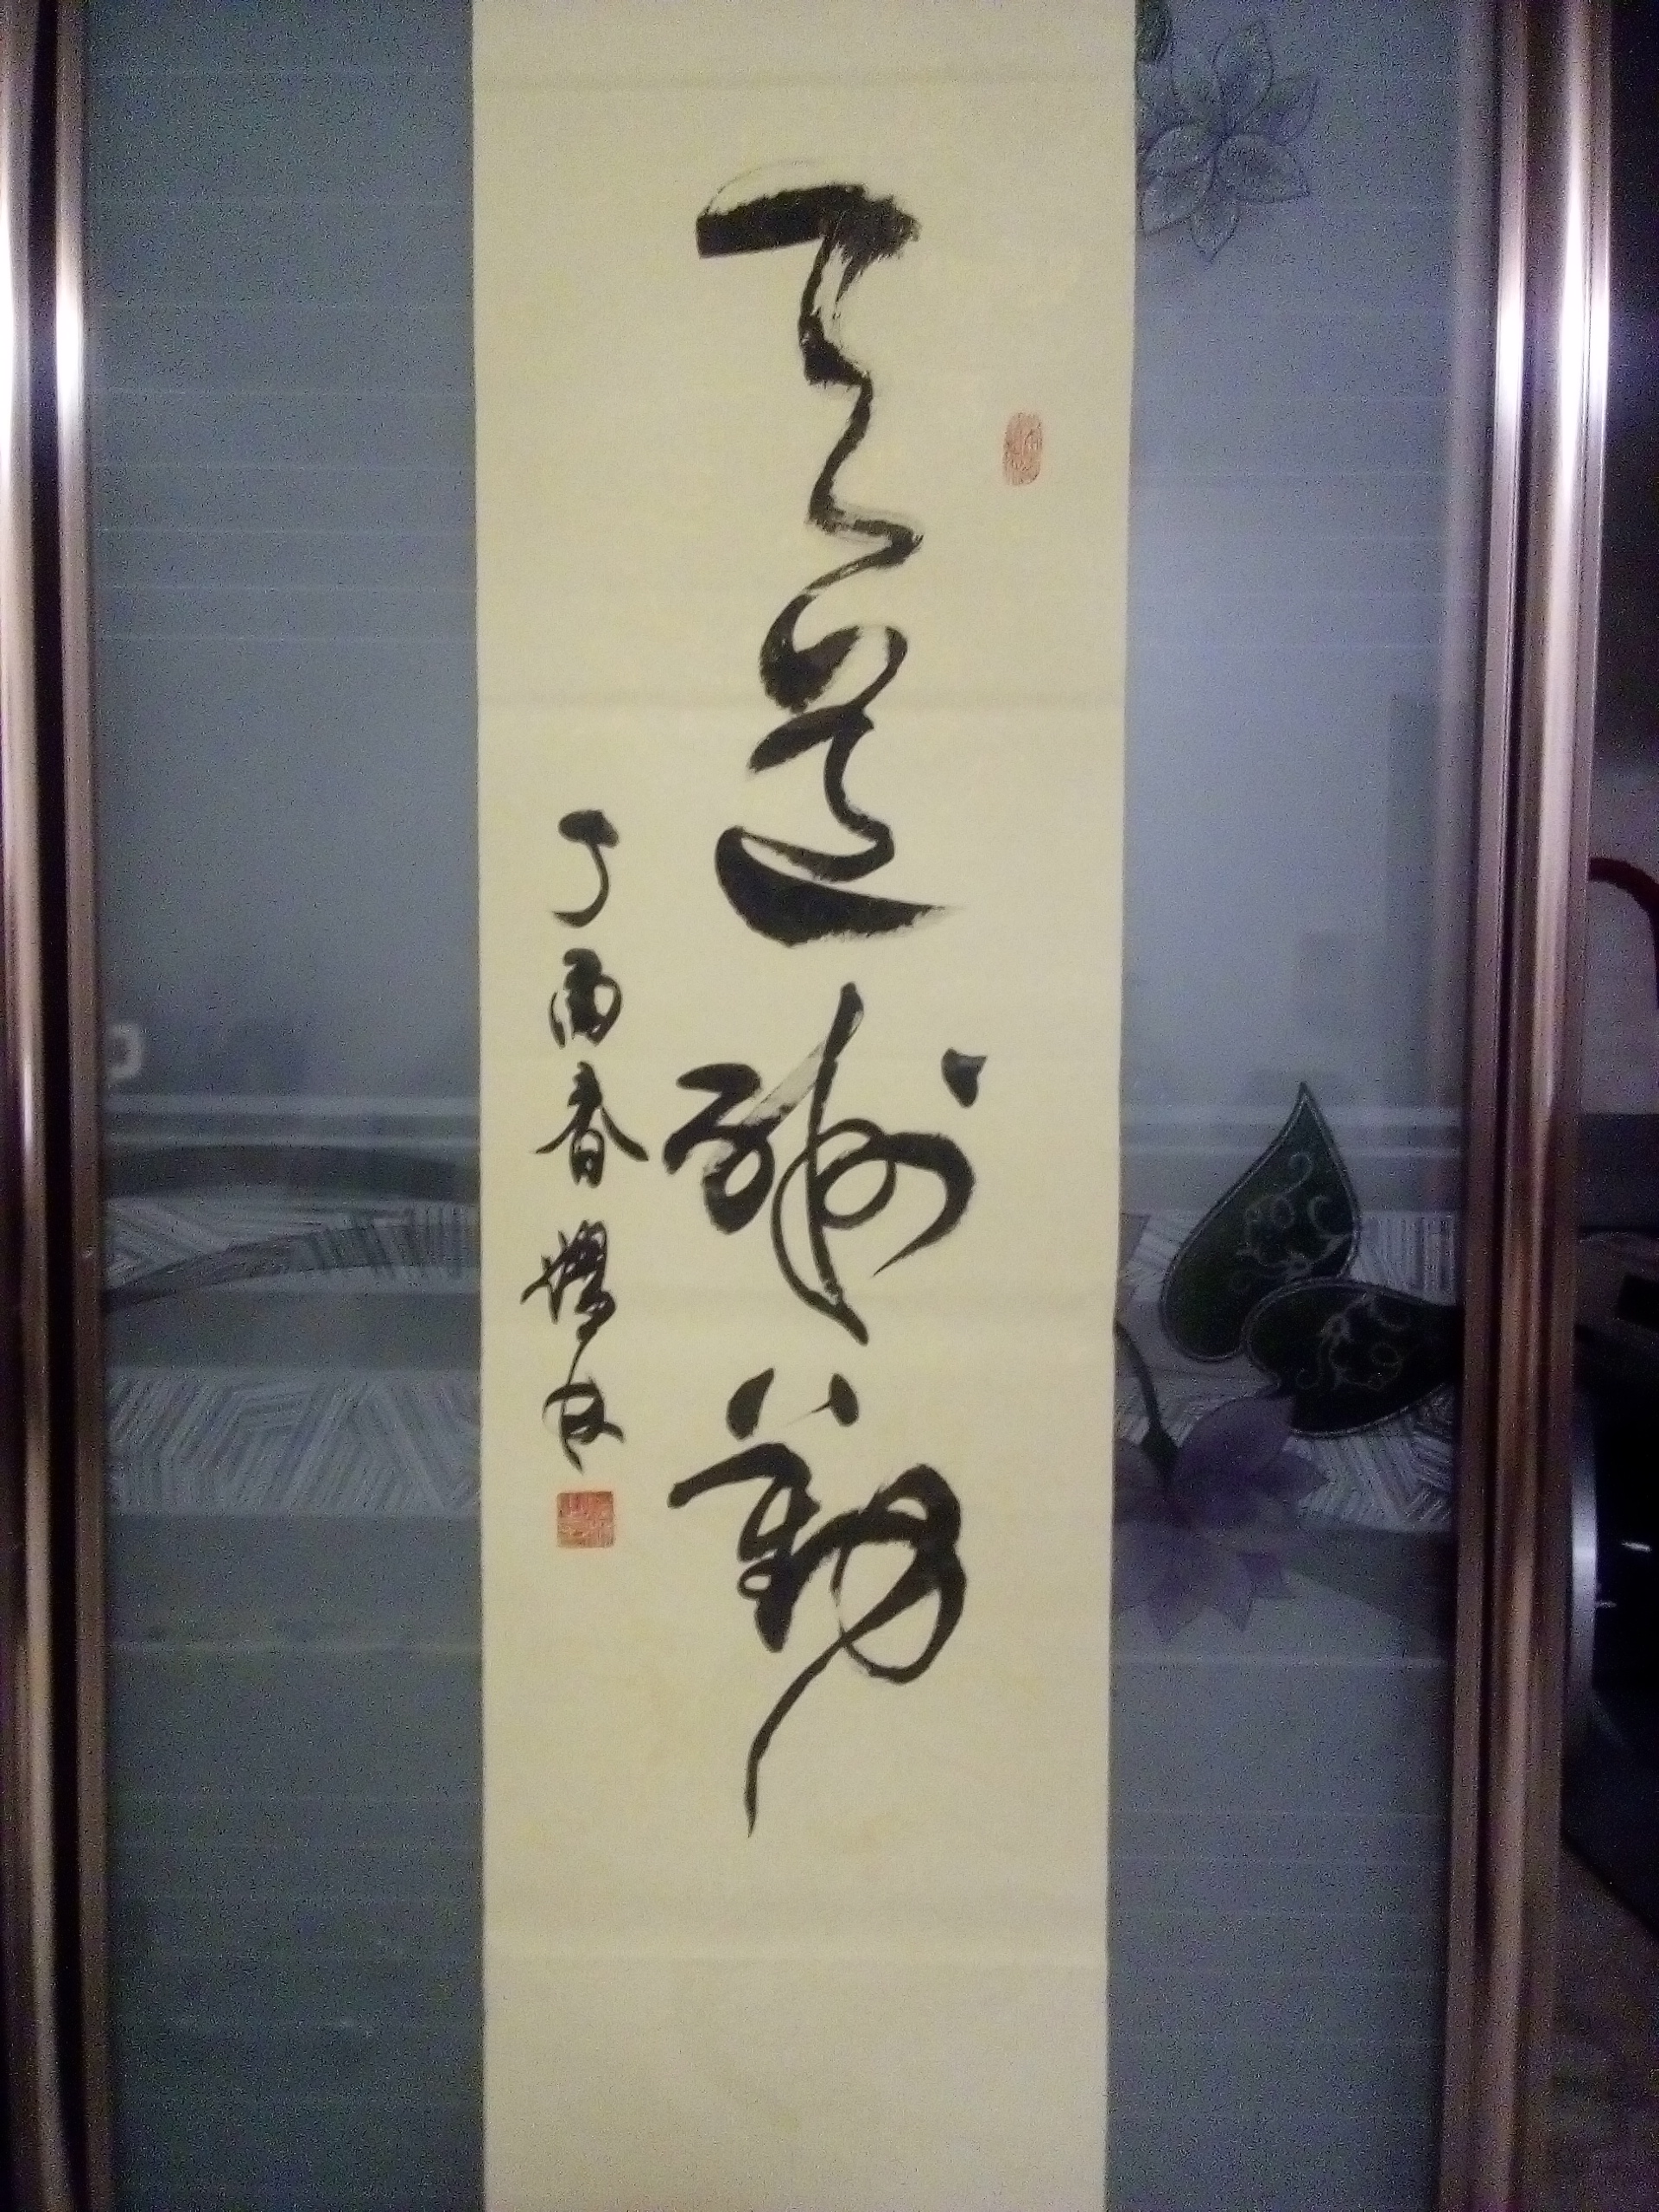 天道酬勤
丁酉春